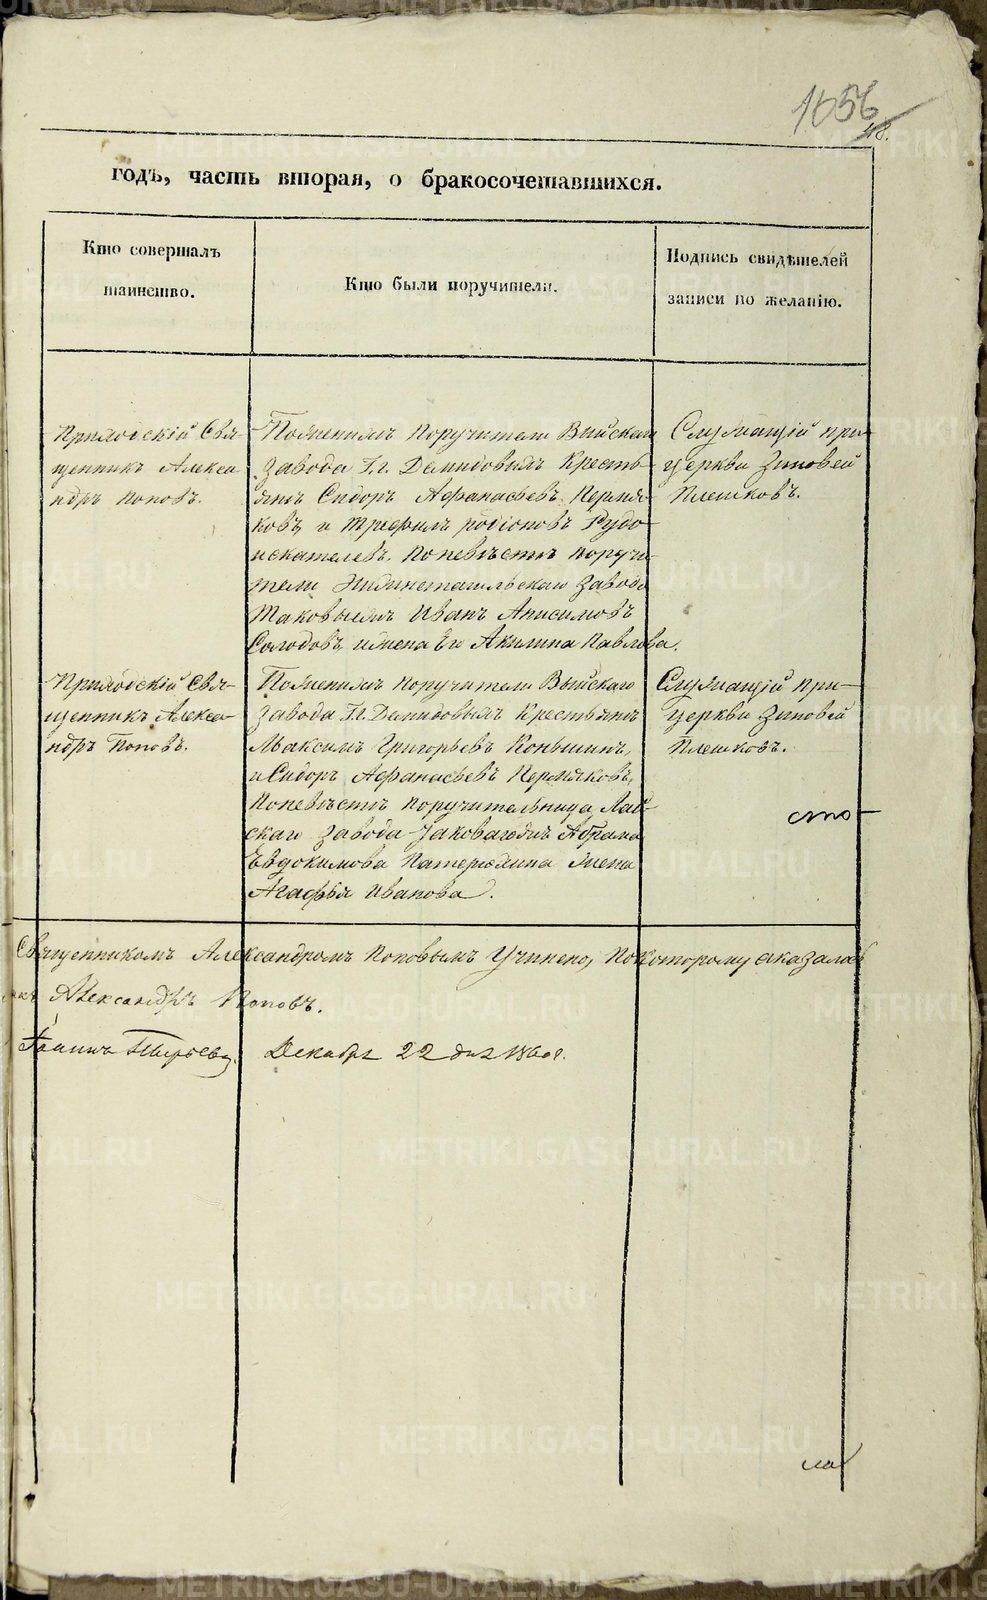 1656
48.
годъ, часть вторая, о бракосочетавшихся.
Кто совершалъ
таинство.
Кто были поручители.
Подпись свидѣтелей
записи по желанію.
Приходскій Свя-
щенникъ Алекса
ндръ Поповъ.
Пожених­ъ Поручители Выйскаго
завода Гг. Демидовыхъ Кресть-
янъ Сидоръ Афанасьевъ Пермя-
ковъ и Трифилъ родіоновъ Рудо-
искателевъ. Поневѣстѣ поручи-
тели Нижнетагильскаго завода
Таковыежъ Иванъ Анисимовъ
Солодовъ, ижена Его Акилина Павлова.
Служащій при
церкви Зиновей
Плешковъ.
Приходскій Свя-
щенникъ Алекса-
ндръ Поповъ.
Поженихѣ поручители Выйскаго
завода Гг. Демидовыхъ Крестьянъ
Максимъ Григорьевъ Коньшинъ,
и Сидоръ Афанасьевъ Пермяковъ,
Поневѣстѣ поручительница, Лай-
скаго завода Абрама
Евдокимова жена
Агафья Иванова.
Служащій при
церкви Зиновей
Плешковъ.
сто-
Священникомъ Александромъ Поповымъ Учинено, покоторому оказалось
Александръ Поповъ.
Іоаннъ Декабря 22 дня 1860 г.